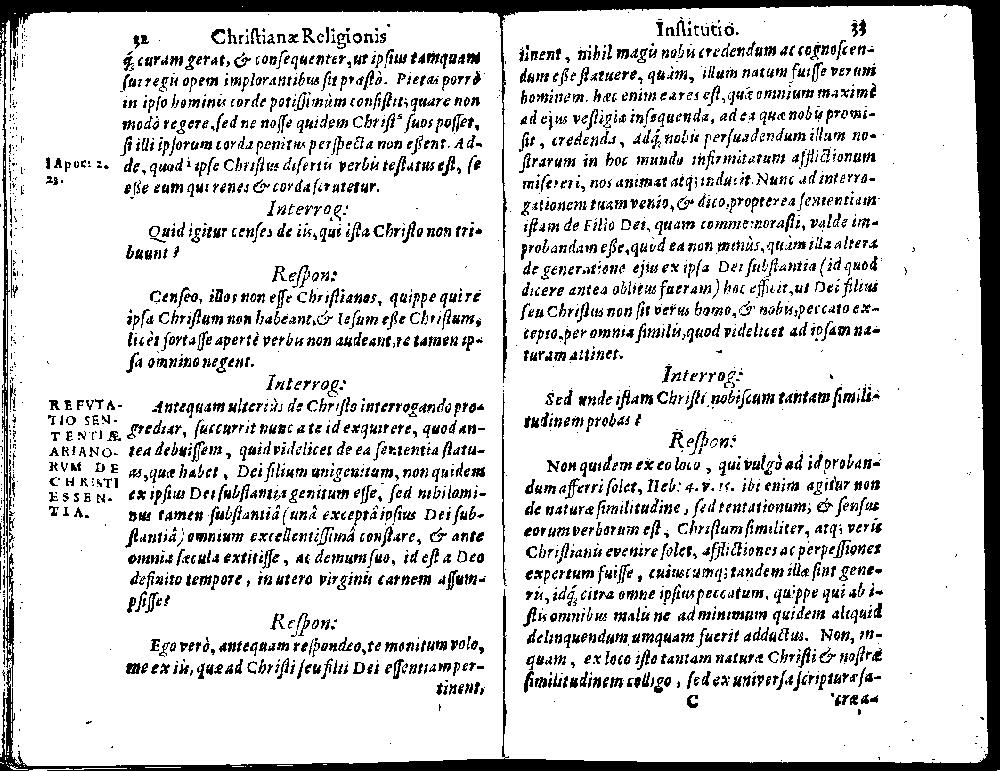 32 Chriſtianæ Religionis
q́; curam gerat, & conſequenter, ut ipſius tamquam
ſui regis opem implorantibus ſit præſtò. Pietas porrò
in ipſo hominis corde potiſſimùm conſiſtit; quare non
modò regere, ſed ne noſſe quidem Chriſtꝰ ſuos poſſet,
ſi illi ipſorum corda penitus perſpecta non eſſent. Ad-
de, quod i ipſe Chriſtus diſertis verbis teſtatus eſt, ſe
eſſe eum qui renes & corda ſcrutetur.
i Apoc: 2.
23.
Interrog:
Quid igitur cenſes de iis, qui iſta Chriſto non tri-
buunt?
Reſpon:
Cenſeo, illos non eſſe Chriſtianos, quippe qui re
ipſa Chriſtum non habeant, & Ieſum eſſe Chriſtum,
licèt fortaſſe apertè verbis non audeant, re tamen ip-
ſa omnino negent.
Interrog:
REFVTA-
TIO SEN-
TENTIÆ
ARIANO-
RVM DE
CHRISTI
ESSEN-
TIA.
Antequam ulteriùs de Chriſto interrogando pro-
grediar, ſuccurrit nunc a te id exquirere, quod an-
tea debuiſſem, quid videlicet de ea ſententia ſtatu-
as, quæ habet, Dei filium unigenitum, non quidem
ex ipſius Dei ſubſtantia genitum eſſe, ſed nihilomi-
nus tamen ſubſtantiâ (unâ exceptâ ipſius Dei ſub-
ſtantiâ) omnium excellentiſſimâ conſtare, & ante
omnia ſæcula extitiſſe, ac demum ſuo, id eſt a Deo
definito tempore, in utero virginis carnem aſſum-
pſiſſe?
Reſpon:
Ego verò, antequam reſpondeo, te monitum volo,
me ex iis, quæ ad Chriſti ſeu filii Dei eſſentiam per-
tinent,
Inſtitutio. 33
tinent, nihil magis nobis credendum ac cognoſcen-
dum eſſe ſtatuere, quàm, illum natum fuiſſe verum
hominem. hæc enim ea res eſt, quæ omnium maximè
ad ejus veſtigia inſequenda, ad ea quæ nobis promi-
ſit, credenda, Adq́; nobis perſuadendum illum no-
ſtrarum in hoc mundo infirmitatum afflictionum
miſereri, nos animat atq; inducit. Nunc ad interro-
gationem tuam venio, & dico, propterea ſententiam
iſtam de Filio Dei, quam commemoraſti, valde im-
probandam eſſe, quòd ea non minùs, quàm illa altera
de generatione ejus ex ipſa Dei ſubſtantia (id quod
dicere antea oblitus fueram) hoc efficit, ut Dei filius
ſeu Chriſtus non ſit verus homo, & nobis, peccato ex-
cepto, per omnia ſimilis, quod videlicet ad ipſam na-
turam attinet.
Interrog:
Sed unde iſtam Chriſti nobiſcum tantam ſimili-
tudinem probas?
Reſpon:
Non quidem ex eo loco, qui vulgò ad id proban-
dum afferri ſolet, Heb: 4. v. 15. ibi enim agitur non
de naturæ ſimilitudine, ſed tentationum; & ſenſus
eorum verborum eſt, Chriſtum ſimiliter, atq; veris
Chriſtianis evenire ſolet, afflictiones ac perpeſſiones
expertum fuiſſe, cuiuscumq; tandem illæ ſint gene-
ris, idq́; citra omne ipſius peccatum, quippe qui ab i-
ſtis omnibus malis ne ad minimum quidem aliquid
delinquendum umquam fuerit adductus. Non, in-
quam, ex loco iſto tantam naturæ Chriſti & noſtræ
ſimilitudinem colligo, ſed ex univerſa ſcriptura ſa-
C cræ a-